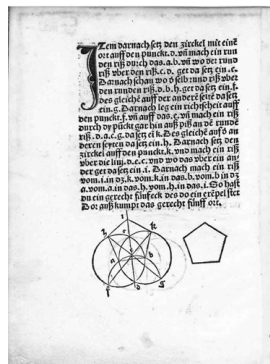 Item darnach setz den zirckel mit einē
ort auff den punckt .d. vñ mach ein run
den riß durch das .a.b. vñ wo der rund
riß vber den riß .c.d. get da setz ein .e.
Darnach schau wo ō selb rund riß vber
den runden riß .d.b.h. get da setz ein .f.
des gleichē auff der anderē seitē da setz
ein .g. Darnach leg ein richscheit auff
den punckt .f. vñ auff das .e. vñ mach ein riß
durch dy pückt gar hin auß piß an dē rundē
riß .d.a.c.g. da setz ein .k. Des gleichē auf ō an
deren seyten da setz ein .h. Darnach setz den
zirckel auff den punckt .k. vnd mach ein riß
vber die linj .d.e.c. vnd wo das vber ein an
der get da setz ein .i. Darnach mach ein riß
vom .i. in dz .k. vom .k. in das .b. vom .b. in dz
.a. vom .a. in das .h. vom .h. in das .i. So hast
du ein gerecht fünfeck des do ein exēpel stet
Dor auß kumpt das gerecht fünff ort.
i
h c k
e
a b
f d g